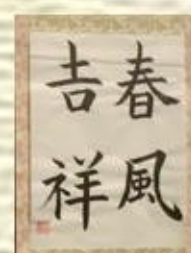 春風
吉祥